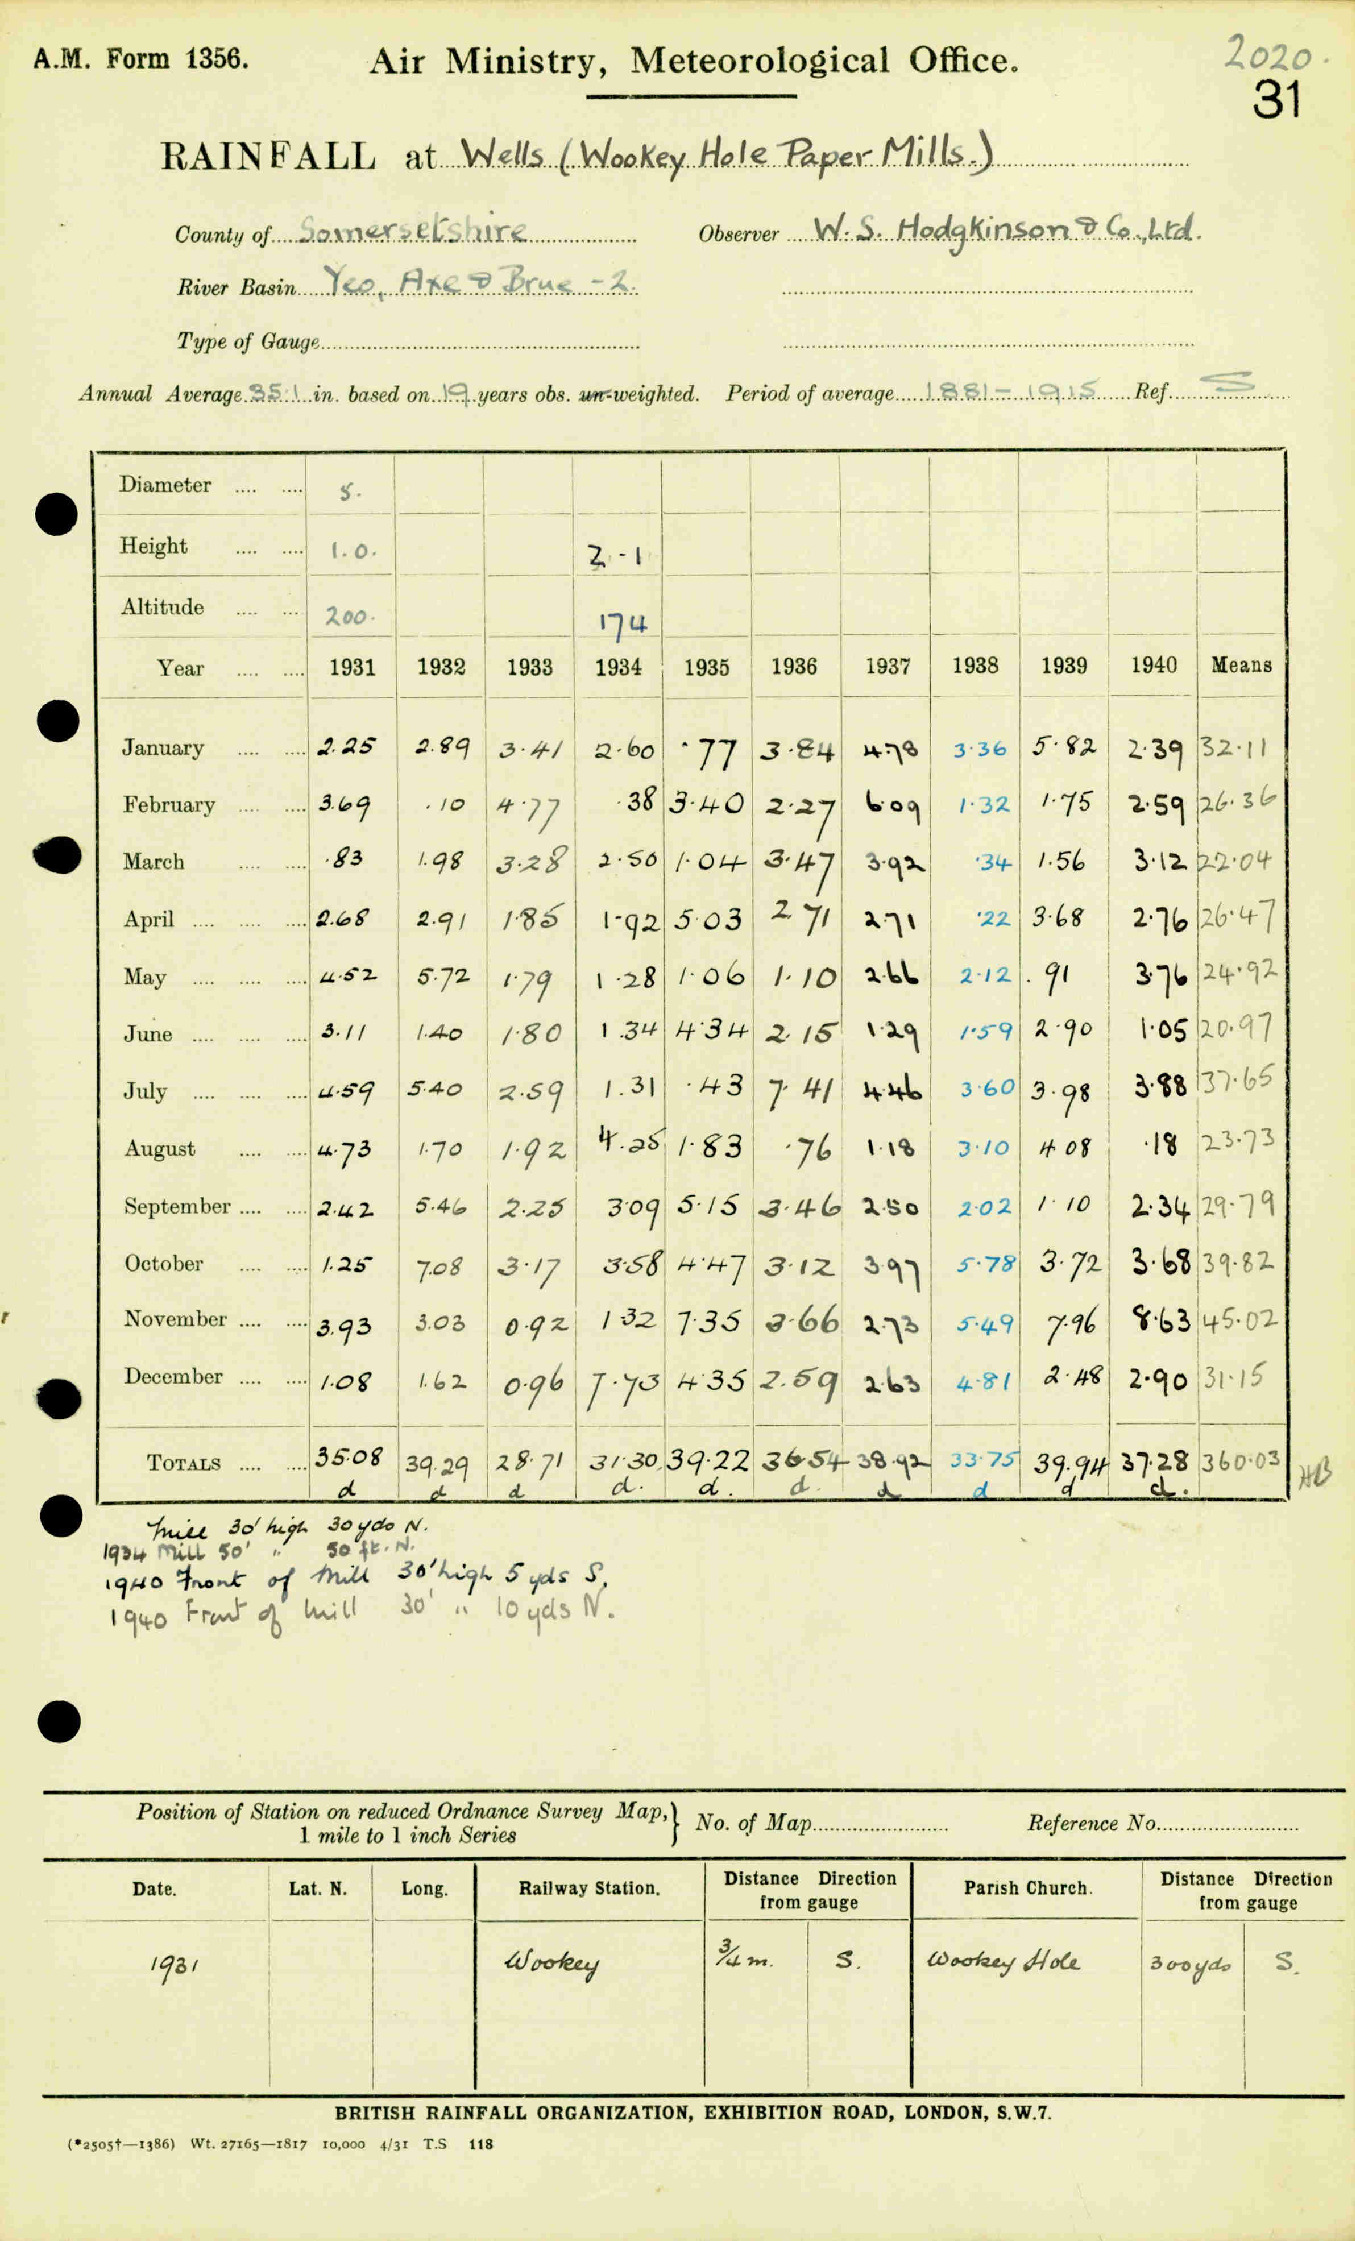 A.M. Form 1356.
Air Ministry, Meteorological Office.
2020.
31
RAINFALL at Wells (Wookey Hole Paper Mills.)
County of Somersetshire Observer W. S. Hodgkinson & Co., Ltd.
River Basin Yeo, Axe & Brue - 2.
Type of Gauge
Annual Average 35.1 in. based on 19 years obs. un-weighted. Period of average 1881 - 1915 Ref. S
Diameter .... .... 5.
Height .... .... 1.0. 2 - 1
Altitude .... .... 200. 174
Year .... .... 1931 1932 1933 1934 1935 1936 1937 1938 1939 1940 Means
January .... .... 2.25 2.89 3.41 2.60 .77 3.84 4.78 3.36 5.82 2.39 32.11
February .... .... 3.69 .10 4.77 .38 3.40 2.27 6.09 1.32 1.75 2.59 26.36
March .... .... .83 1.98 3.28 2.50 1.04 3.47 3.92 .34 1.56 3.12 22.04
April .... .... .... 2.68 2.91 1.85 1.92 5.03 2.71 2.71 .22 3.68 2.76 26.47
May .... .... .... 4.52 5.72 1.79 1.28 1.06 1.10 2.66 2.12 .91 3.76 24.92
June .... .... .... 3.11 1.40 1.80 1.34 4.34 2.15 1.29 1.59 2.90 1.05 20.97
July .... .... .... 4.59 5.40 2.59 1.31 .43 7.41 4.46 3.60 3.98 3.88 37.65
August .... .... 4.73 1.70 1.92 4.25 1.83 .76 1.18 3.10 4.08 .18 23.73
September .... .... 2.42 5.46 2.25 3.09 5.15 3.46 2.50 2.02 1.10 2.34 29.79
October .... .... 1.25 7.08 3.17 3.58 4.47 3.12 3.97 5.78 3.72 3.68 39.82
November .... .... 3.93 3.03 0.92 1.32 7.35 3.66 2.73 5.49 7.96 8.63 45.02
December .... .... 1.08 1.62 0.96 7.73 4.35 2.59 2.63 4.81 2.48 2.90 31.15
TOTALS .... .... 35.08 39.29 28.71 31.30 39.22 36.54 38.92 33.75 39.94 37.28 360.03
d d d d. d. d. d d d d.
Mill 30' high 30 yds N.
1934 Mill 50' " 50 ft. N.
1940 Front of Mill 30' high 5 yds S.
1940 Front of Mill 30' " 10 yds N.
Position of Station on reduced Ordnance Survey Map, } No. of Map Reference No.
1 mile to 1 inch Series
Date. Lat. N. Long. Railway Station. Distance Direction from gauge Parish Church. Distance Direction from gauge
1931 Wookey 3/4 m. S. Wookey Hole 300 yds S.
BRITISH RAINFALL ORGANIZATION, EXHIBITION ROAD, LONDON, S.W.7.
(*2505†—1386) Wt. 27165—1817 10,000 4/31 T.S 118